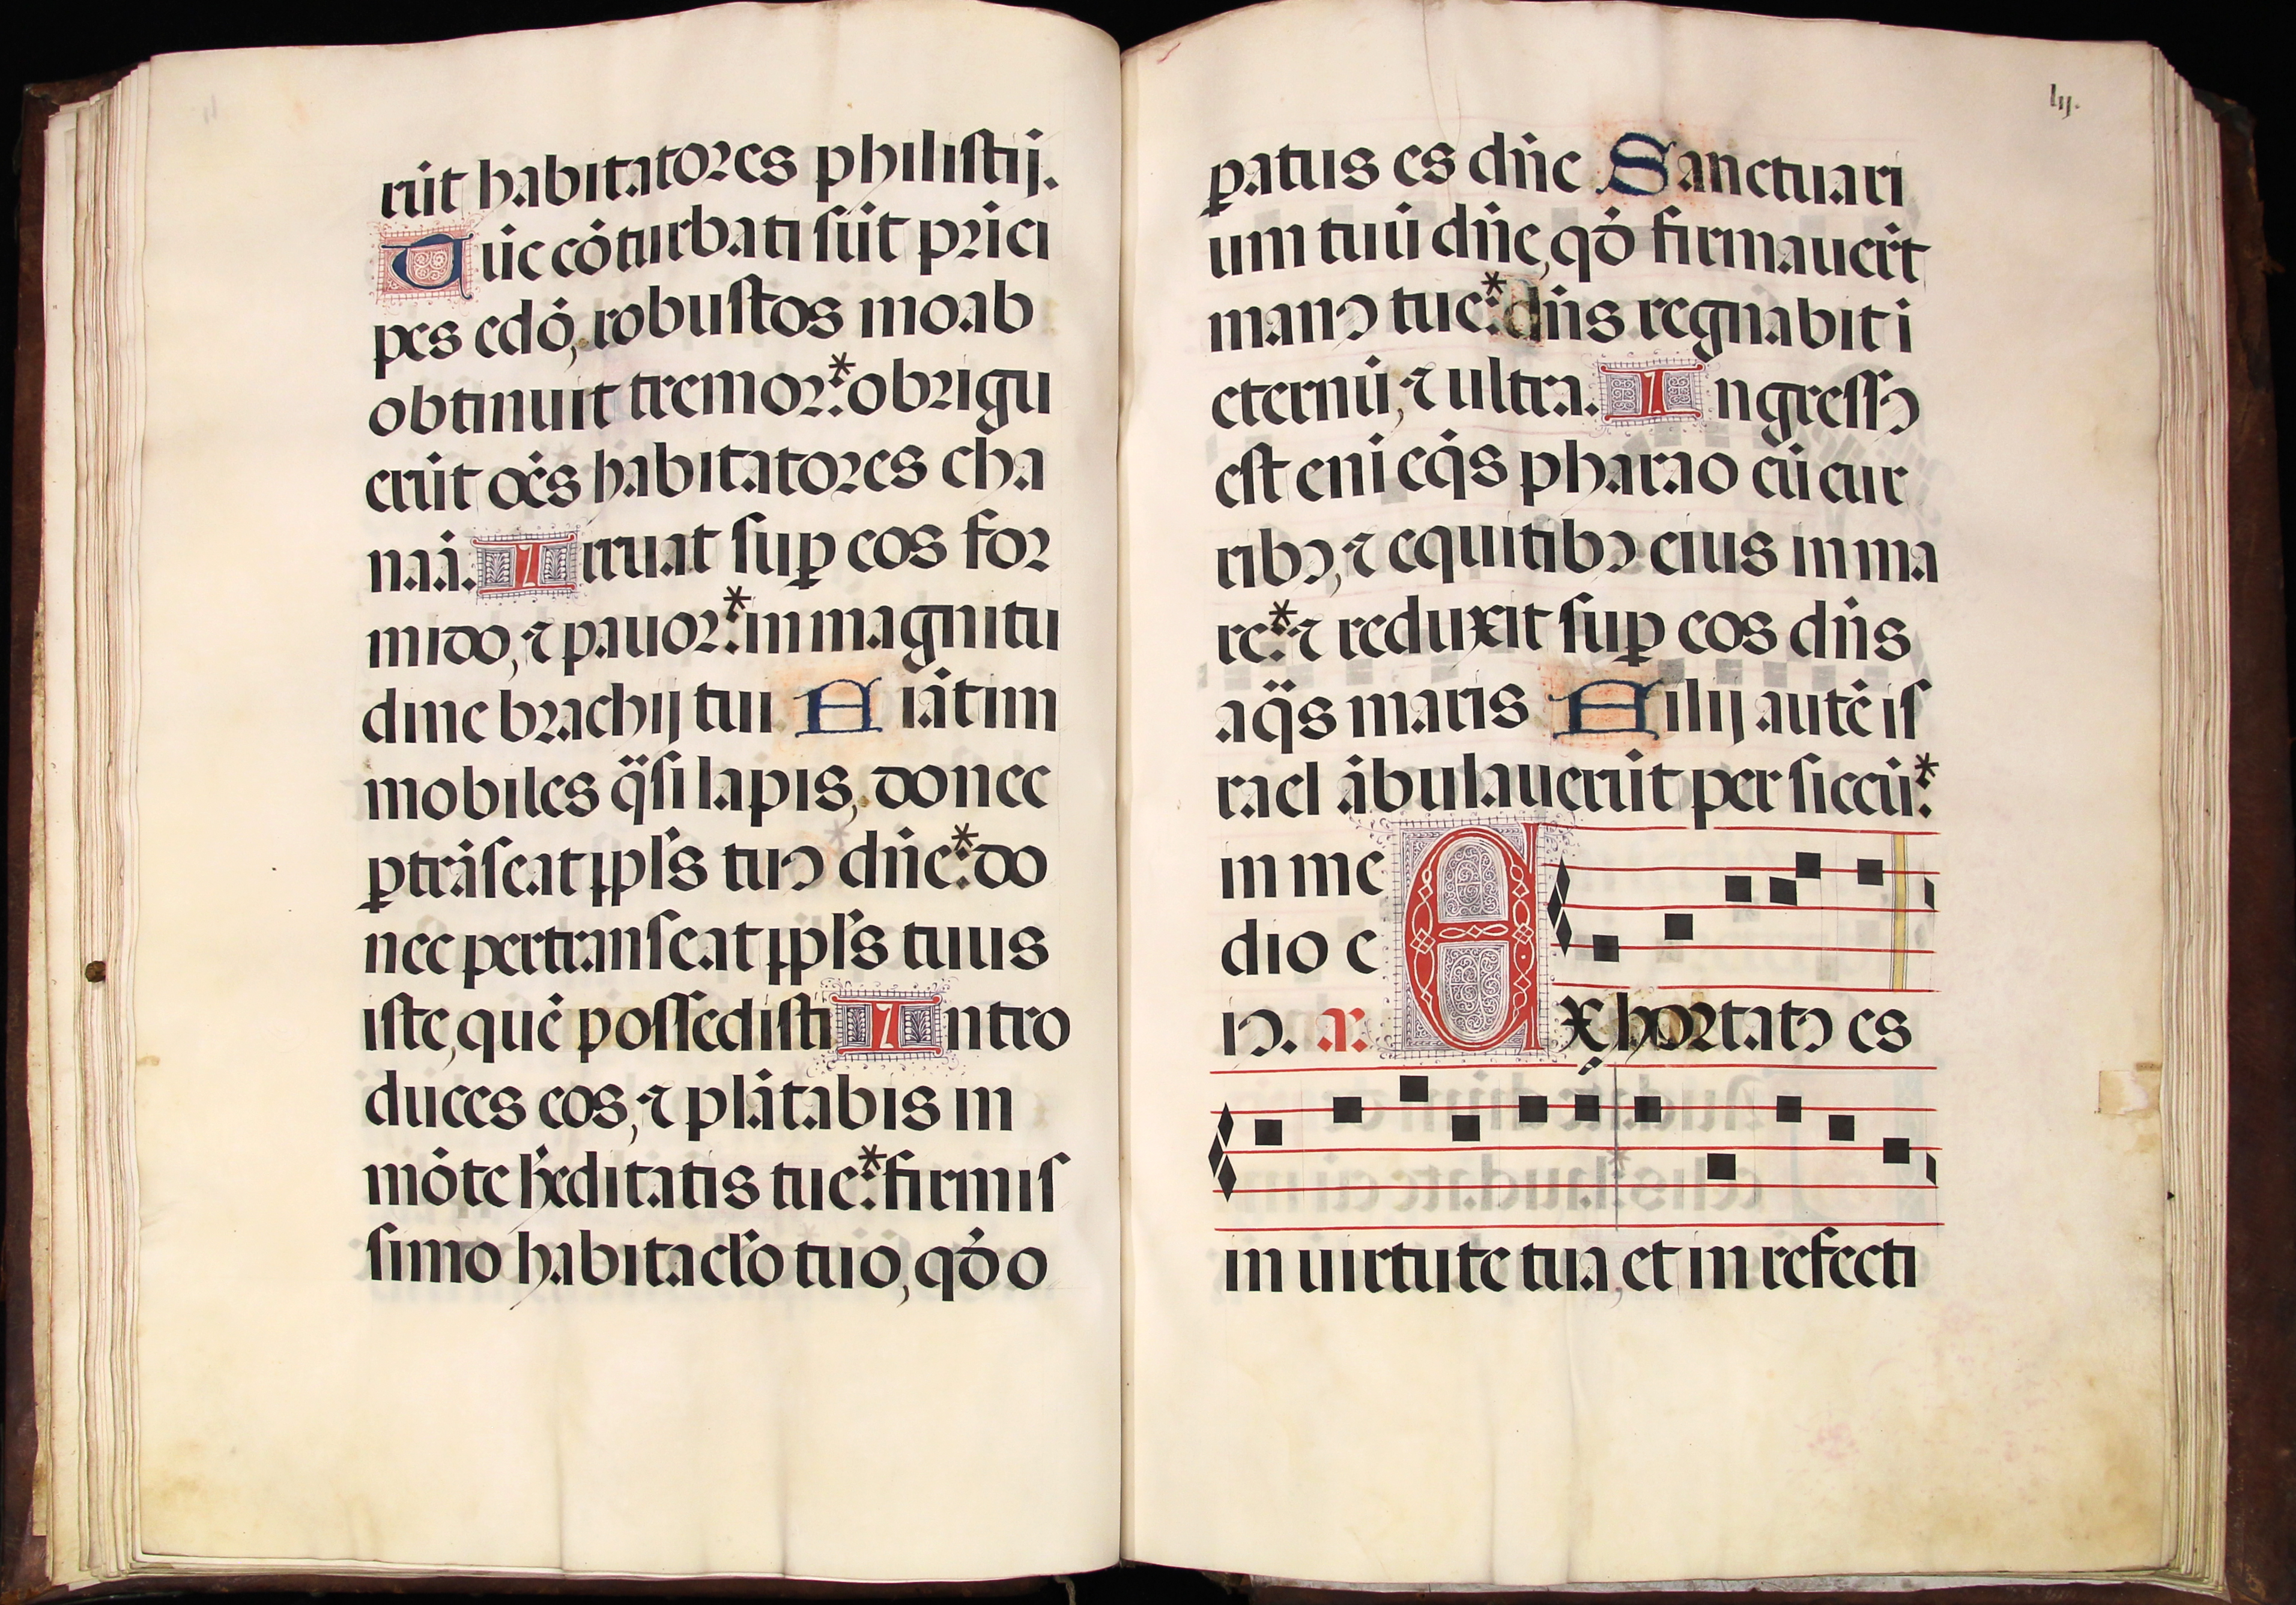 rūt habitatores philistij.
Tūc cōturbati sūt prīci
pes edō, robustos moab
obtinuit tremor:* obrigu
erūt oēs habitatores cha
naā. Irruat sup eos for
mido, ⁊ pauor:* in magnitu
dine brachij tui Fiāt im
mobiles q̈si lapis, donec
ꝑtrāseat ppl's tuꝰ dn̄e:* do
nec pertranseat ppl's tuus
iste, quē possedisti Intro
duces eos, ⁊ plātabis in
mōte h̓editatis tue:* firmis
simo habitacl'o tuo, qđ o
lij.
ꝑatus es dn̄e Sanctuari
um tuū dn̄e, qđ firmauer̄t
manꝰ tue:* dn̄s regnabit ī
eternū, ⁊ ultra. Ingressꝰ
est enī eq̄s pharao cū cur
ribꝰ, ⁊ equitibꝰ eius in ma
re:* ⁊ reduxit suꝑ eos dn̄s
aq̈s maris Filij autē is
rael ābulauerūt per siccū:*
in me
dio e
iꝰ. a. Exhortatꝰ es
in uirtute tua, et in refecti